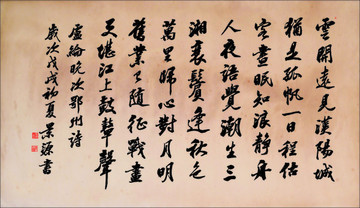 雲開遠見漢陽城
猶是孤帆一日程估
客晝眠知浪靜舟
人夜語覺潮生三
湘衰鬢逢秋色
萬里歸心對月明
舊業已隨征戰盡
更堪江上鼓鼙聲
盧綸晚次鄂州詩
歲次戊戌初夏景源書